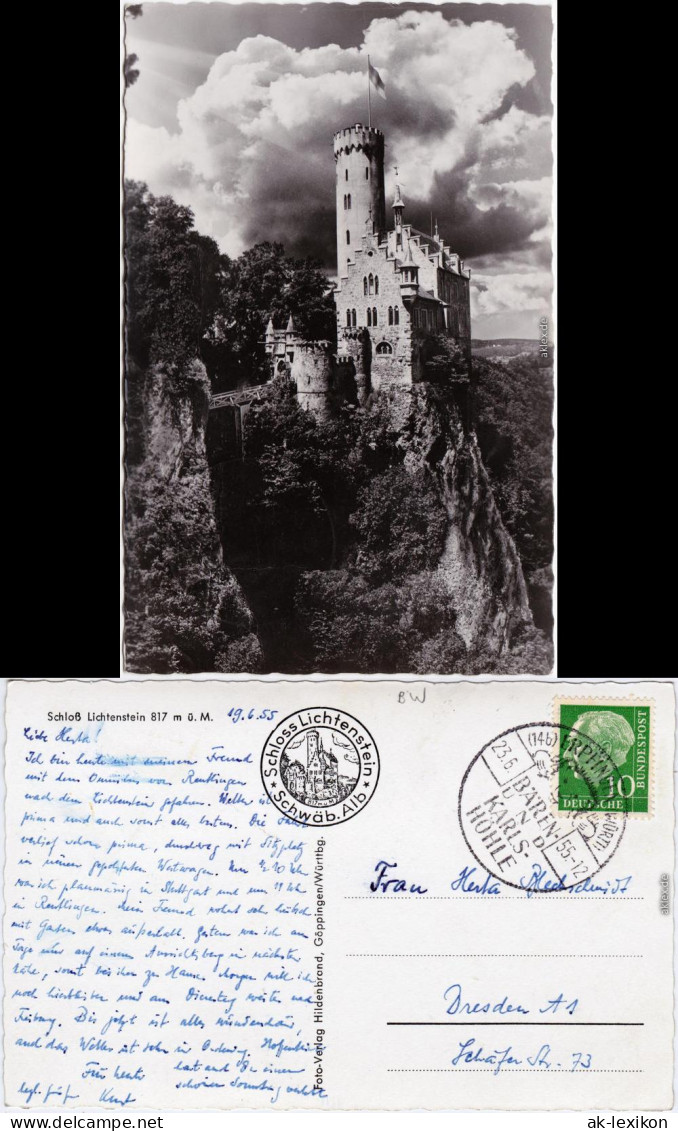 aklex.de
Schloß Lichtenstein 817 m ü. M.
19.6.55
BW
Schloss Lichtenstein
817 m ü. M.
* Schwäb. Alb *
Liebe Herta!
Ich bin heute mit meinem Freund
mit dem Omnibus von Reutlingen
nach dem Lichtenstein gefahren. Wetter ist
prima und auch sonst alles bestens. Die Fahrt
verlief schon prima, durchweg mit Sitzplatz
in
war ich planmäßig in Stuttgart und um 11 Uhr
in Reutlingen. Mein Freund wohnt sehr hübsch
mit Garten etwas außerhalb. Gestern war ich am
Tage nur auf einem Aussichtsberg in nächster
Nähe, sonst bei ihm zu Hause. Morgen will ich
noch hierbleiben und am Dienstag weiter nach
Freiburg. Bis jetzt ist alles wunderschön,
und das Wetter ist sehr in Ordnung. Hoffentlich
Für heute hast auch Du einen
schönen Sonntag verlebt
herzl. Grüße Kurt
Foto-Verlag Hildenbrand, Göppingen/Württbg.
(14b)
23.6.
55-12
BÄREN
UND
KARLS-
HÖHLE
10
DEUTSCHE
BUNDESPOST
Frau Herta
Dresden A1
Schäfer Str. 73
aklex.de
www.delcampe.net
ak-lexikon